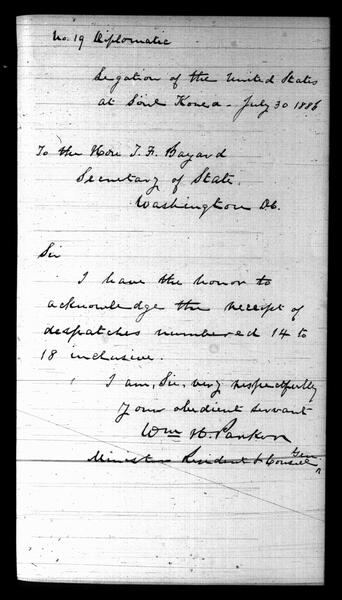 No. 19 Diplomatic
Legation of the United States
at Söul Korea - July 30 1886
To the Hon. T. F. Bayard
Secretary of State.
Washington DC.
Sir
I have the honor to
acknowledge the receipt of
despatches numbered 14 to
18 inclusive.
I am, Sir, very respectfully
Your obedient servant
Wm H. Parker
Minister Resident & Consul Gen